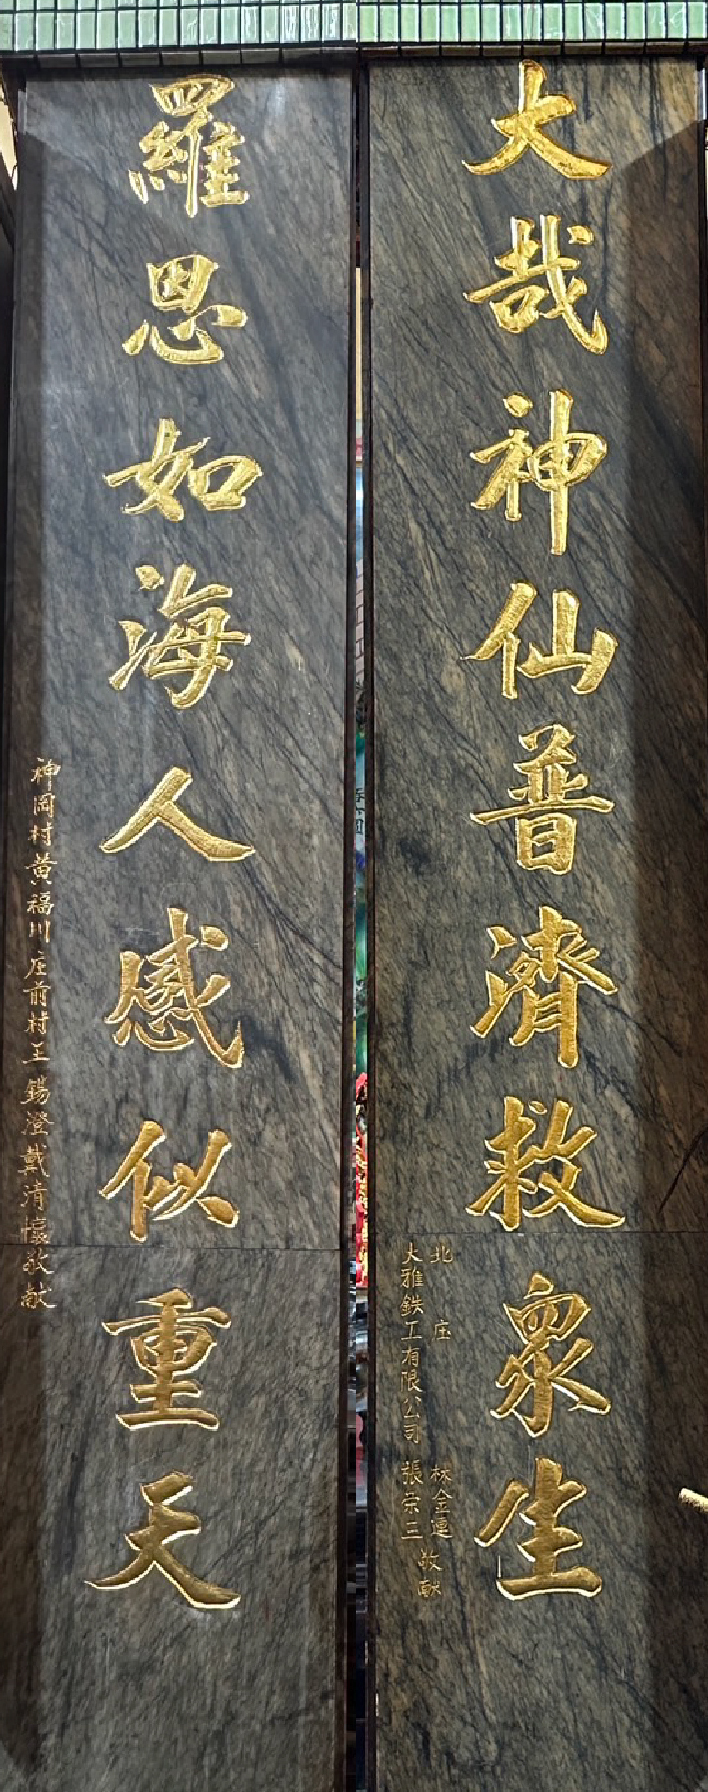 大哉神仙普濟救眾生
北庄 林金連 敬献
大雅鉄工有限公司 張荣三
羅恩如海人感似重天
神岡村黄福川庄前村王錫澄戴清標敬献